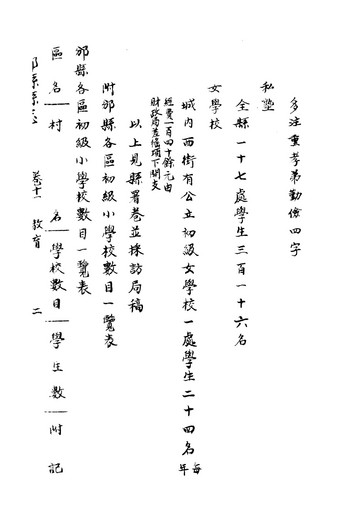 多注重孝弟勤儉四字
私塾
全縣一十七處學生三百一十六名
女學校
城內西街有公立初級女學校一處學生二十四名每年
經費一百四十餘元由
財政局差徭項下開支
以上見縣署卷並採訪局稿
附邠縣各區初級小學校數目一覽表
邠縣各區初級小學校數目一覽表
區名 村名 學校數目 學生數 附記
卷十一 教育 二